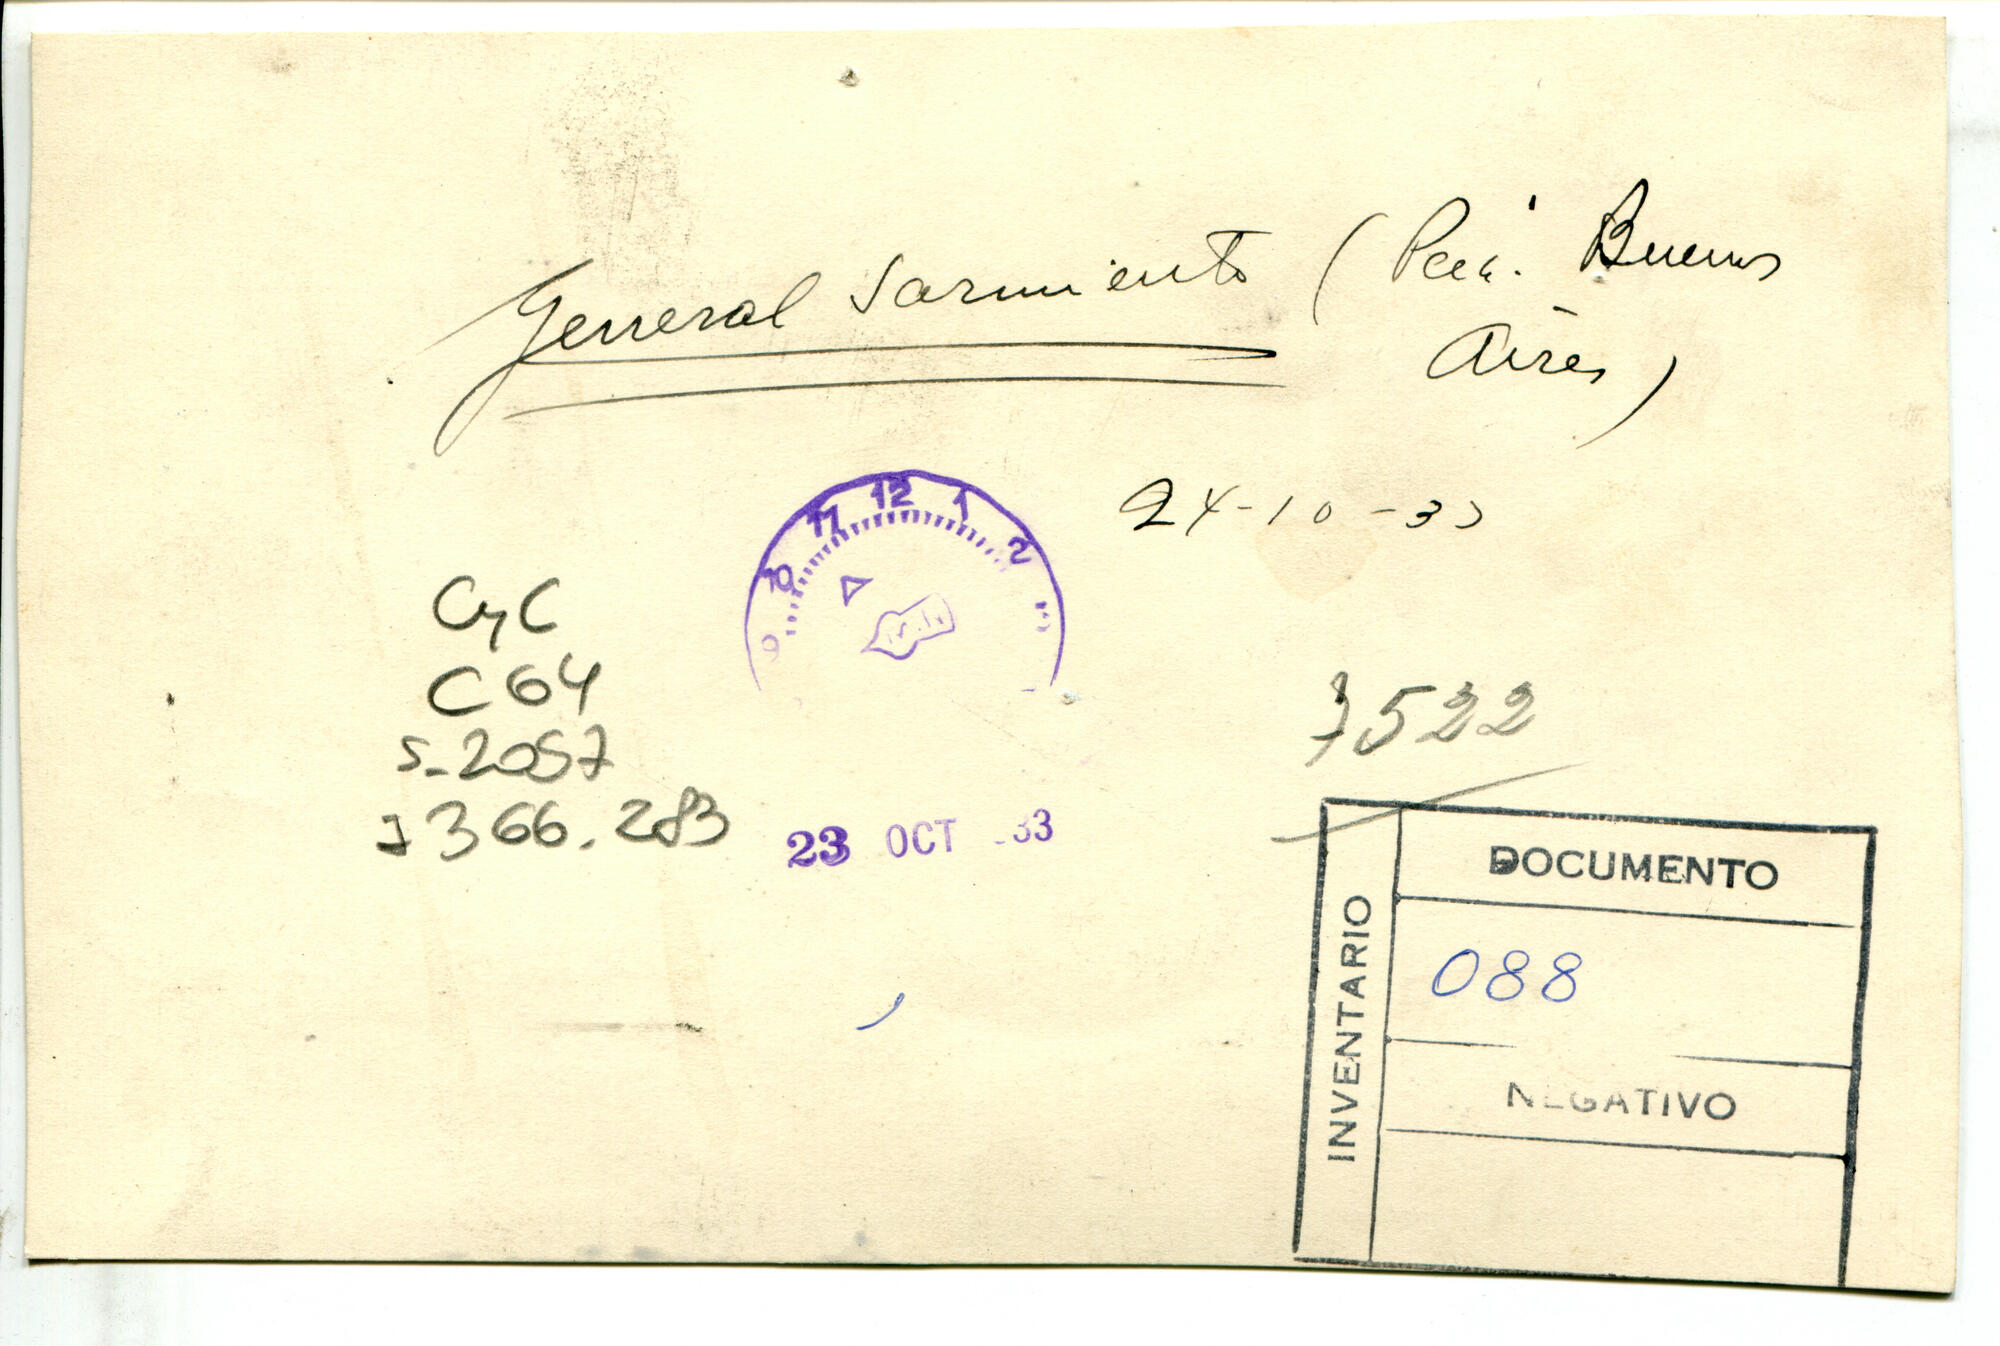 General Sarmiento (Pcia. Buenos
Aires)
24-10-33
12
11 1
10 2
9 3
CyC
C64
S-2057
J 366.283
7522
23 OCT 33
INVENTARIO
DOCUMENTO
088
NEGATIVO